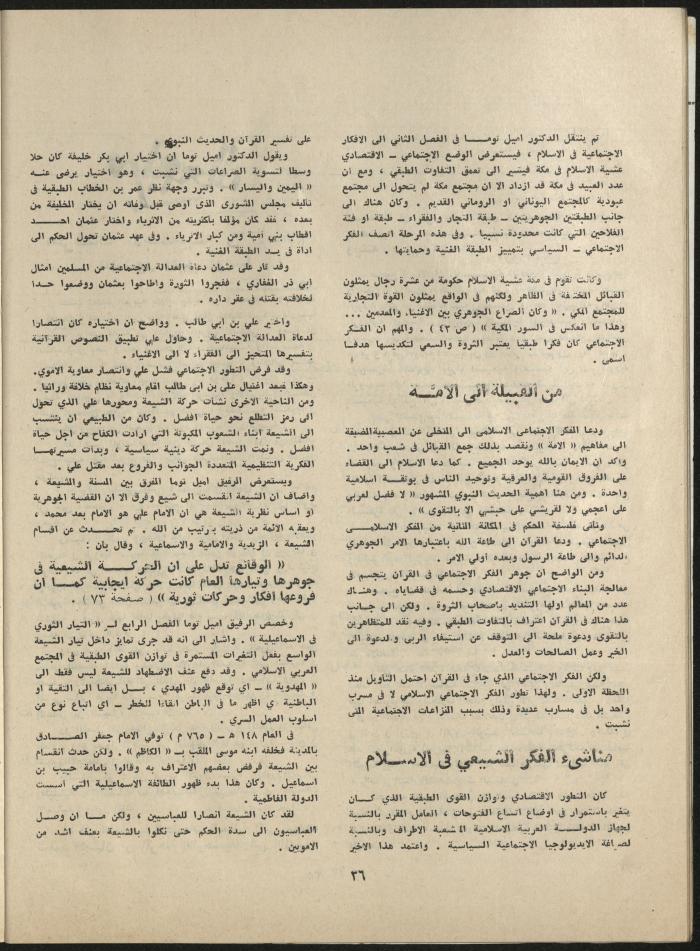 تم ينتقل الدكتور اميل تومــا فى الفصل الثانى الى الافكار
الاجتماعية فى الاسلام ، فيستعرض الوضع الاجتماعي ــ الاقتصادي
عشية الاسلام فى مكة فيشير الى تعمق التفاوت الطبقي ، ومع ان
عدد العبيد فى مكة قد ازداد الا ان مجتمع مكة لم يتحول الى مجتمع
عبودية كالمجتمع اليونانى او الرومانى القديم . وكان هناك الى
جانب الطبقتين الجوهريتين ــ طبقة التجار والفقراء ــ طبقة او فئة
الفلاحين التي كانت محدودة نسبيا . وفى هذه المرحلة اتصف الفكر
الاجتماعي ــ السياسي بتمييز الطبقة الغنية وحمايتها .
وكانت تقوم فى مكة عشية الاسلام حكومة من عشرة رجال يمثلون
القبائل المختلفة فى الظاهر ولكنهم فى الواقع يمثلون القوة التجارية
للمجتمع المكي . « وكان الصراع الجوهري بين الاغنياء والمعدمين ...
وهذا ما انعكس فى السور المكية » ( ص ٤٣ ) . والمهم ان الفـكر
الاجتماعي كان فكرا طبقيا يعتبر الثروة والسعي لتكديسها هدفـا
اسمى .
من القبيلة الى الامـَّـة
ودعا الفكر الاجتماعى الاسلامى الى التخلى عن العصبية الضيقة
الى مفاهيم « الامة » ونقصد بذلك جمع القبائل فى شعب واحد .
واكد ان الايمان بالله يوحد الجميع . كما دعا الاسلام الى القضاء
على الفروق القومية والعرقية وتوحيد الناس فى بوتقـة اسلامية
واحدة . ومن هنا اهمية الحديث النبوي المشهور « لا فضل لعربي
على اعجمي ولا لقريشي على حبشي الا بالتقوى » .
وتاتى فلسفة الحكم فى المكانة الثانية من الفكر الاسلامــى
الاجتماعي . ودعا القرآن الى طاعة الله باعتبارها الامر الجوهري
الدائم والى طاعة الرسول وبعده أولي الامر .
ومن الواضح ان جوهر الفكر الاجتماعي فى القرآن يتجسم فى
معالجة البناء الاجتماعي الاقتصادي وحسمه فى قضاياه . وهنــاك
عدد من المعالم اولها التنديد باصحاب الثروة . ولكن الى جـانب
هذا هناك فى القرآن اعتراف بالتفاوت الطبقي . وفيه نقد للمتظاهرين
بالتقوى ودعوة ملحة الى التوقف عن استيفاء الربى والدعوة الى
الخير وعمل الصالحات والعدل .
ولكن الفكر الاجتماعي الذي جاء فى القرآن احتمل التاويل منذ
اللحظة الاولى . ولهذا تطور الفكر الاجتماعي الاسلامي لا فى مسرب
واحد بل فى مسارب عديدة وذلك بسبب النزاعات الاجتماعية التى
نشبت .
مناشىء الفكر الشيعي فى الاسـلام
كان التطور الاقتصادي وتوازن القوى الطبقية الذي كــان
يتغير باستمرار فى اوضاع اتساع الفتوحات ، العامل المقرر بالنسبة
لجهاز الدولــة العربية الاسلامية المتشعبة الاطراف وبالنسبة
لصياغة الايديولوجيا الاجتماعية السياسية . واعتمد هذا الاخير
على تفسير القرآن والحديث النبوي .
ويقول الدكتور اميل توما ان اختيار ابي بكر خليفة كان حلا
وسطا لتسوية الصراعات التي نشبت ، وهو اختيار يرضى عنـه
« اليمين واليسار » . وتبرر وجهة نظر عمر بن الخطاب الطبقية فى
تاليف مجلس الشورى الذى اوصى قبل وفاته ان يختار الخليفة من
بعده ، فقد كان مؤلفا باكثريته من الاثرياء واختار عثمان احــد
اقطاب بني امية ومن كبار الاثرياء . وفى عهد عثمان تحول الحكم الى
اداة فى يــد الطبقة الغنية .
وقد ثار على عثمان دعاة العدالة الاجتماعية من المسلمين امثال
ابي ذر الغفاري ، ففجروا الثورة واطاحوا بعثمان ووضعوا حـدا
لخلافته بقتله فى عقر داره .
واختير علي بن ابي طالب . وواضح ان اختياره كان انتصارا
لدعاة العدالة الاجتماعية . وحاول علي تطبيق النصوص القرآنية
بتفسيرها المتحيز الى الفقراء لا الى الاغنياء .
وقد فرض التطور الاجتماعي فشل علي وانتصار معاوية الاموي.
وهكذا فبعد اغتيال على بن ابى طالب اقام معاوية نظام خلافة وراثيا .
ومن الناحية الاخرى نشات حركة الشيعة ومحورها علي الذي تحول
الى رمز التطلع نحو حياة افضل . وكان من الطبيعي ان ينتسب
الى الشيعة ابناء الشعوب المكبوتة التي ارادت الكفاح من اجل حياة
افضل . ونمت الشيعة حركة دينية سياسية ، وبدات مسيرتهــا
الفكرية التنظيمية المتعددة الجوانب والفروع بعد مقتل علي .
ويستعرض الرفيق اميل توما الفرق بين السنة والشيعة ،
واضاف ان الشيعة انقسمت الى شيع وفرق الا ان القضية الجوهرية
او اساس نظرية الشيعة هي ان الامام علي هو الامام بعد محمد ،
ويعقبه الائمة من ذريته بترتيب من الله . ثم تحــدث عن اقسام
الشيعة ، الزيدية والامامية والاسماعية ، وقال بان :
« الوقائع تدل على ان الحركــة الشيعية فى
جوهرها وتيارها العام كانت حركة ايجابية كمــا ان
فروعها افكار وحركات ثورية » ( صفحة ٧٣ ) .
وخصص الرفيق اميل توما الفصل الرابع لــ « التيار الثوري
فى الاسماعيلية » . واشار الى انه قد جرى تمايز داخل تيار الشيعة
الواسع بفعل التغيرات المستمرة فى توازن القوى الطبقية فى المجتمع
العربي الاسلامي . وقد دفع عنف الاضطهاد للشيعة ليس فقط الى
« المهدوية » ــ اي توقع ظهور المهدي ، بــل ايضا الى التقية او
الباطنية اي اظهر ما فى الباطن اتقاءا للخطر ــ اي اتباع نوع من
اسلوب العمل السري .
فى العام ١٤٨ هـ ــ ( ٧٦٥ م ) توفي الامام جعفر الصــادق
بالمدينة فخلفه ابنه موسى الملقب بــ « الكاظم » . ولكن حدث انقسام
بين الشيعة فرفض بعضهم الاعتراف به وقالوا بامامة حبيب بن
اسماعيل . وكان هذا بدء ظهور الطائفة الاسماعيلية التي اسست
الدولة الفاطمية .
لقد كان الشيعة انصارا للعباسيين ، ولكن مــا ان وصــل
العباسيون الى سدة الحكم حتى نكلوا بالشيعة بعنف اشد من
الامويين .
٣٦